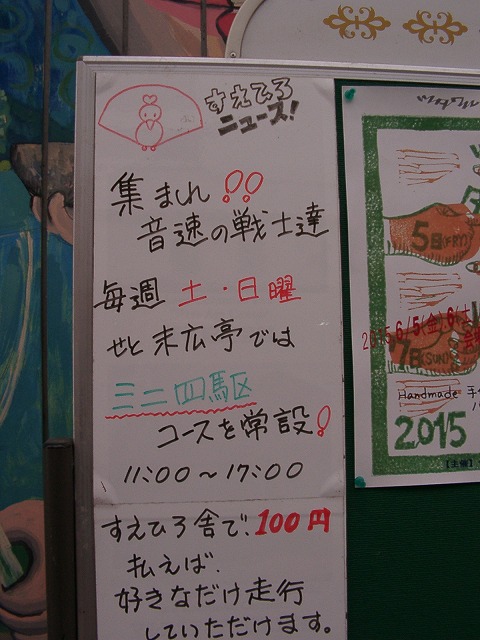 すえひろ
ニュース!
集まれ!!
音速の戦士達
毎週 土・日曜
せと末広亭では
ミニ四駆
コースを常設!
11:00～17:00
すえひろ舎で、100円
払えば、
好きなだけ走行
していただけます。
5日(FRY)
2015 6/5(金).6(土
7日(SUN)
Handmade 手
2015
【主催】